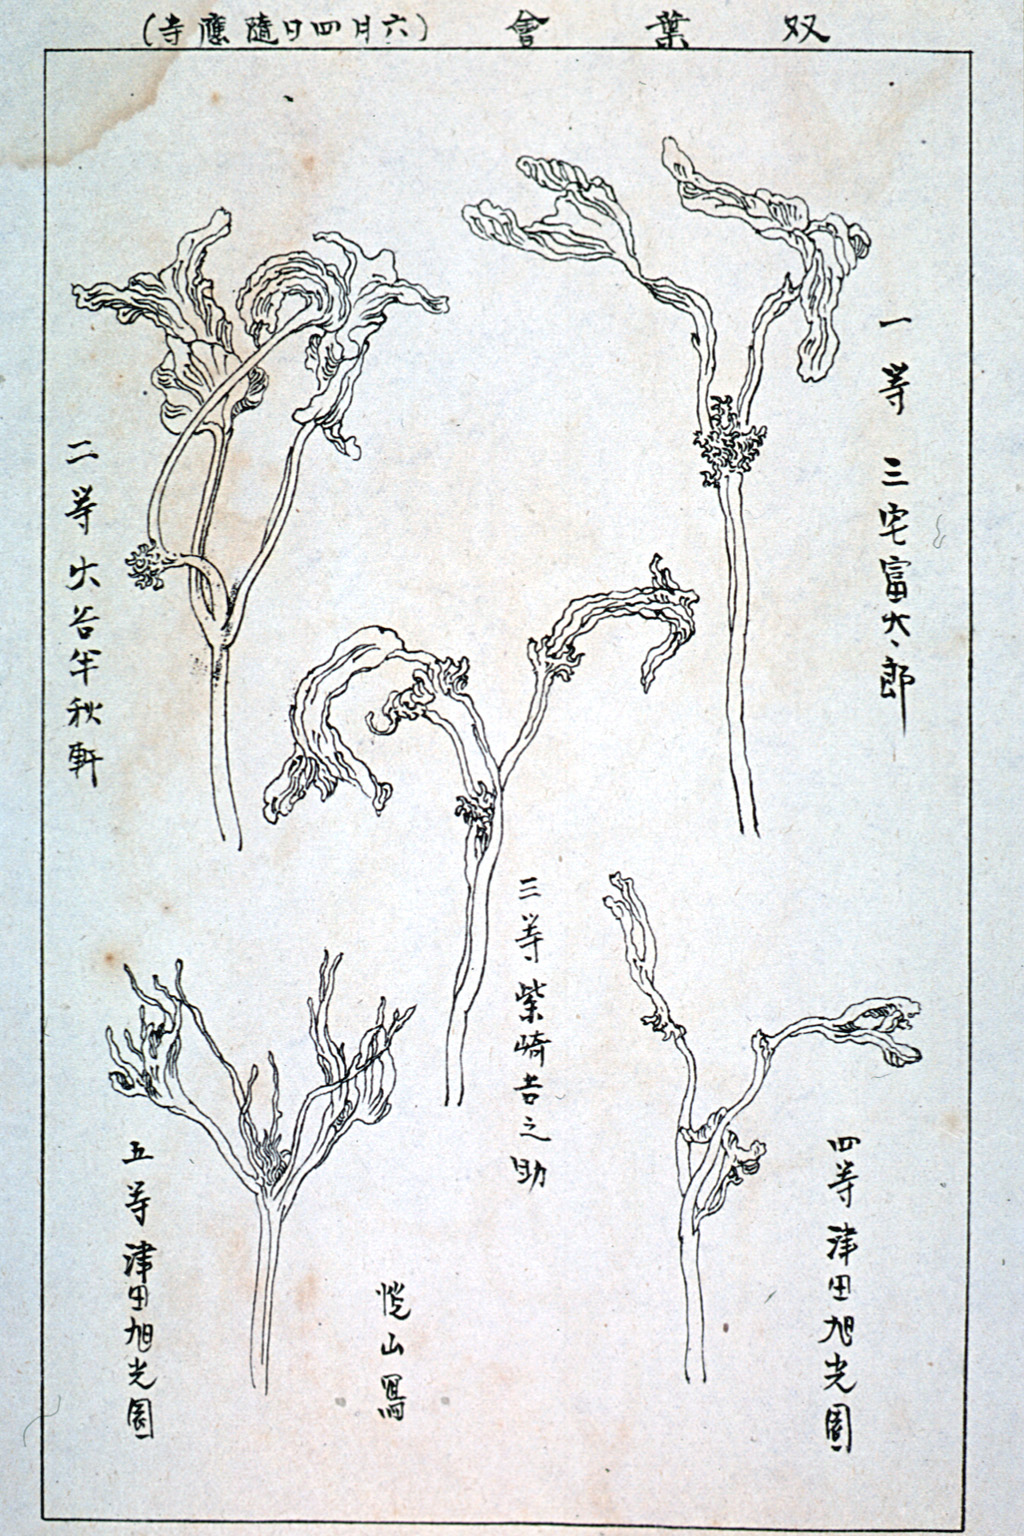 双葉會 (六月四日隨應寺)
一等 三宅富太郎
二等 大谷半秋軒
三等 柴崎吉之助
四等 津田旭光園
五等 津田旭光園
山冩